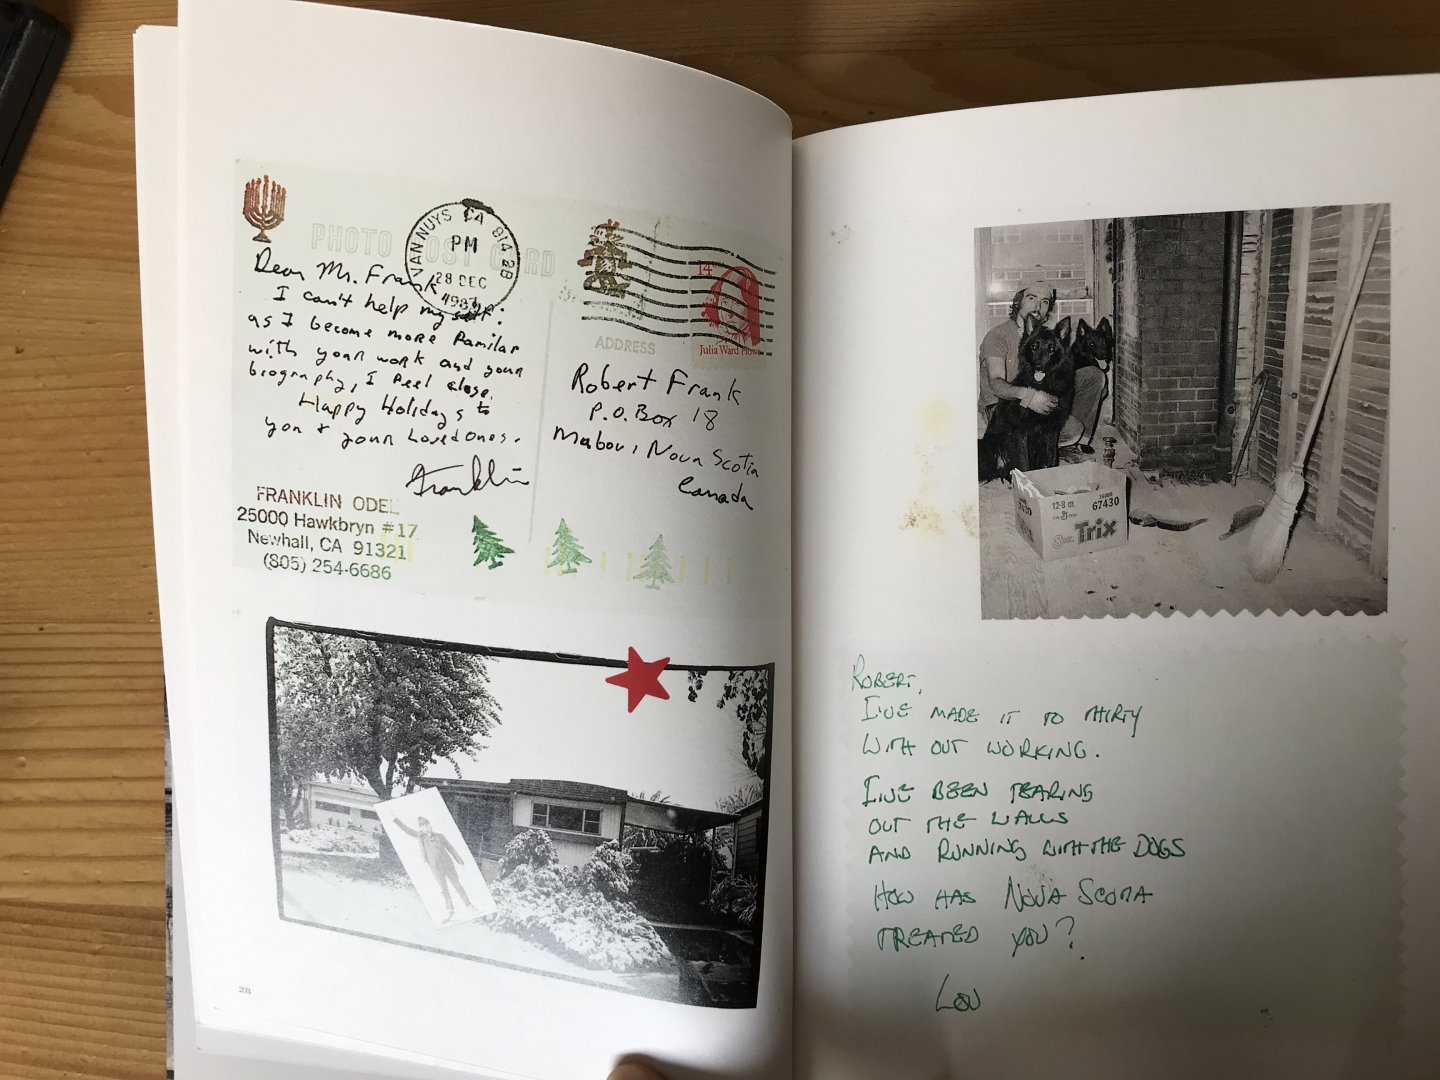 PHOTO POST CARD
VAN NUYS CA 914 2B
PM
28 DEC
1987
Dear Mr. Frank
I can't help my self:
as I become more familar
with your work and your
biography, I feel close.
Happy Holidays to
you + your Loved Ones.
Franklin
FRANKLIN ODEL
25000 Hawkbryn #17
Newhall, CA 91321
(805) 254-6686
14
Julia Ward Howe
ADDRESS
Robert Frank
P.O. Box 18
Mabou, Nova Scotia
Canada
28
12-8 oz.
67430
8
Trix
ROBERT,
I'VE MADE IT TO THIRTY
WITH OUT WORKING.
I'VE BEEN TEARING
OUT THE WALLS
AND RUNNING WITH THE DOGS
HOW HAS NOVA SCOTIA
TREATED YOU?
LOU